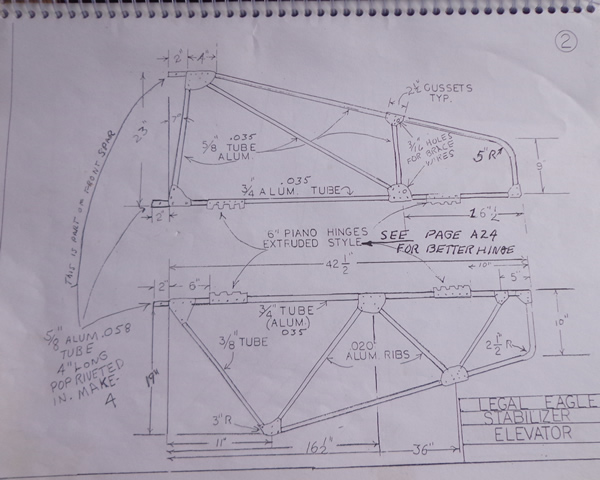 2
2" 4"
2 1/2" GUSSETS
TYP.
.035
5/8" TUBE
ALUM.
3/16 HOLES
FOR BRACE
WIRES
5"R
9"
23"
7"
THIS IS PART OF FRONT SPAR
.035
3/4" ALUM. TUBE
2"
16 1/2"
6" PIANO HINGES
EXTRUDED STYLE
SEE PAGE A24
FOR BETTER HINGE
42 1/2"
10"
2" 6" 5"
3/4" TUBE
(ALUM)
.035
5/8" ALUM .058
TUBE
4" LONG
POP RIVETED
IN. MAKE-
4
3/8" TUBE
.020
ALUM. RIBS
2 1/2" R
10"
19"
3"R
11"
16 1/2"
36"
LEGAL EAGLE
STABILIZER
ELEVATOR